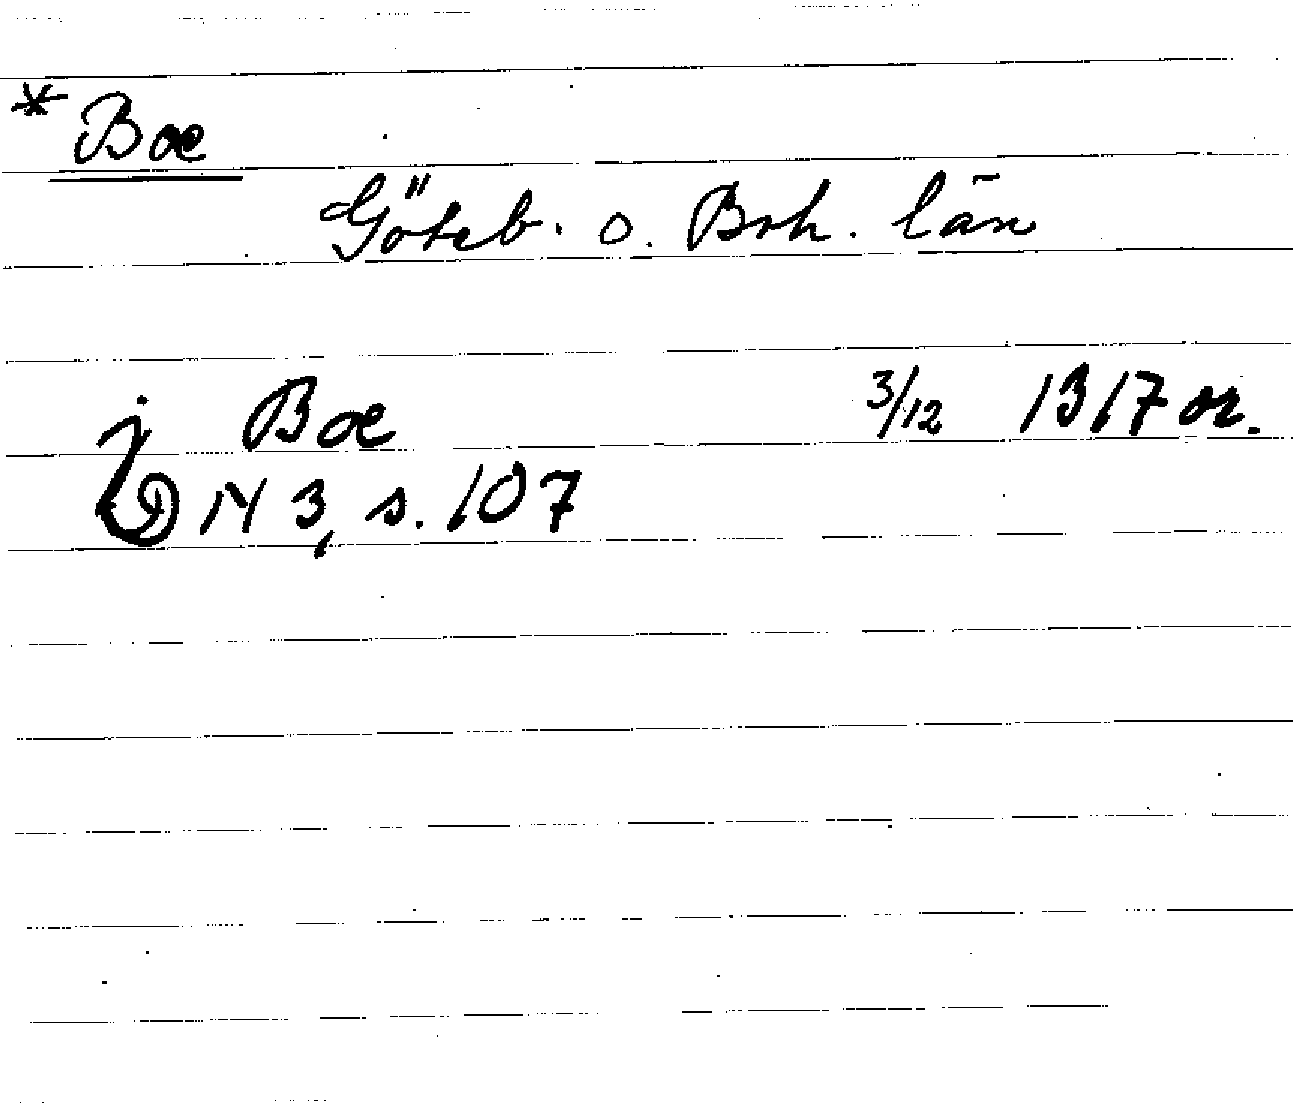 * Boe
Göteb. o. Boh. län
j Boe 3/12 1317 or.
DN 3, s. 107